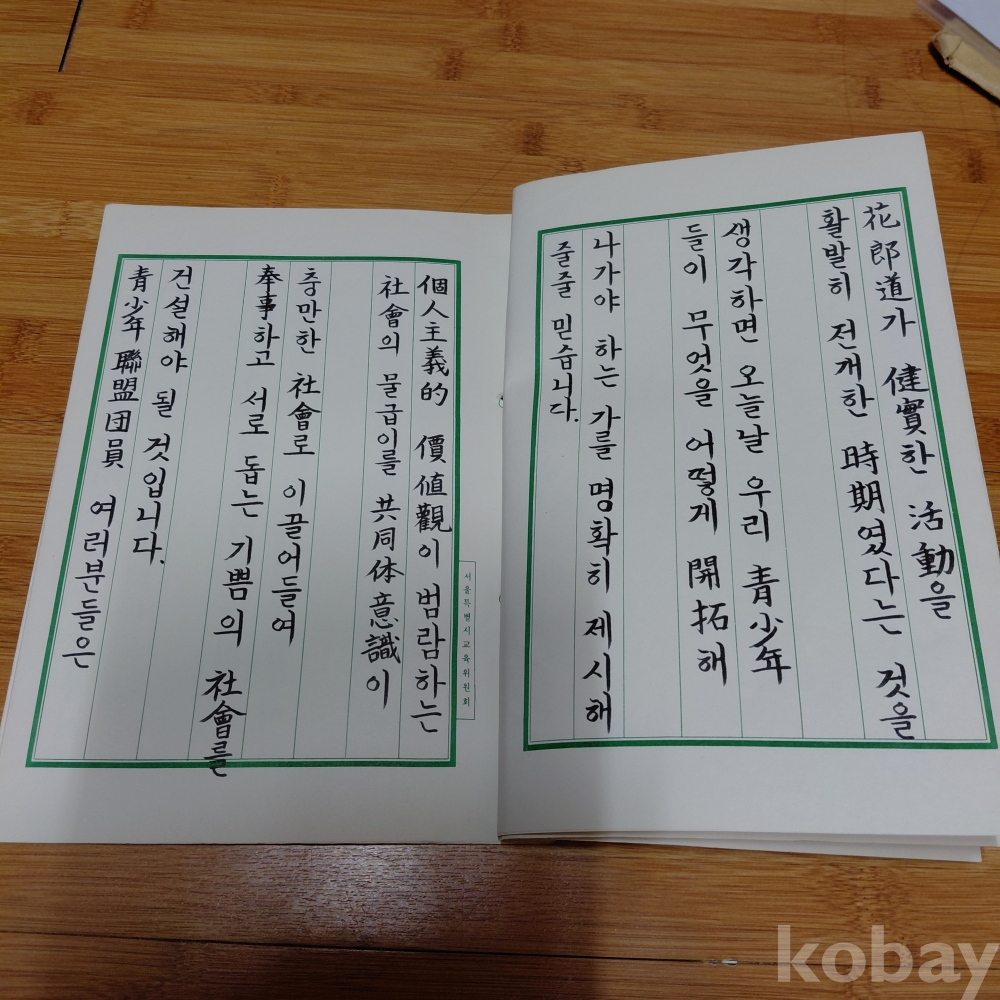 花郎道가 健實한 活動을
활발히 전개한 時期였다는 것을
생각하면 오늘날 우리 青少年
들이 무엇을 어떻게 開拓해
나가야 하는 가를 명확히 제시해
줄줄 믿습니다.
個人主義的 價値觀이 범람하는
社會의 물급이를 共同体意識이
충만한 社會로 이끌어들여
奉事하고 서로 돕는 기쁨의 社會를
건설해야 될 것입니다.
青少年 聯盟团員 여러분들은
서울특별시교육위원회
kobay